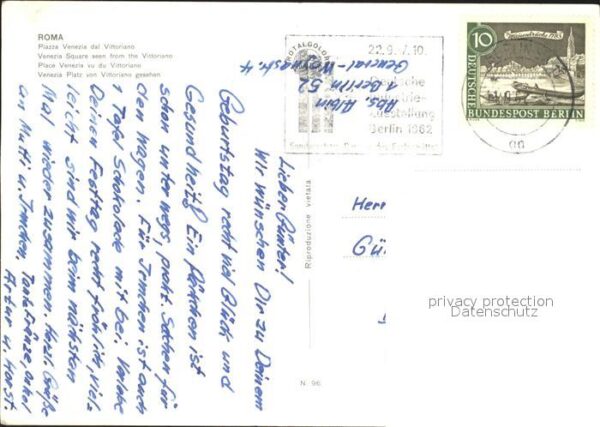 ROMA
Piazza Venezia dal Vittoriano
Venezia Square seen from the Vittoriano
Place Venezia vu du Vittoriano
Venezia Platz von Vittoriano gesehen
Lieber Günter!
Wir wünschen Dir zu Deinem
Geburtstag recht viel Glück und
Gesundheit! Ein Päckchen ist
schon unterwegs, prakt. Sachen für
den Wagen. Für Irmchen ist auch
1 Tafel Schokolade mit bei. Verlebe
Deinen Festtag recht fröhlich, viel-
leicht sind wir beim nächsten
Mal wieder zusammen. Herzl. Grüße
an Mutti u. Irmchen. Tante Fränze, Onkel
Artur u. Horst.
Abs. Albin
1 Berlin 52
General-
22.9.-7.10.
Deutsche
Industrie-
Ausstellung
Berlin 1962
10
DEUTSCHE
BUNDESPOST BERLIN
Riproduzione vietata
N 96
Herr
Gü
privacy protection
Datenschutz